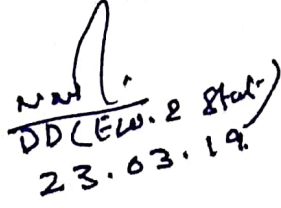 DD (EW. & Stat.)
23.03.19.